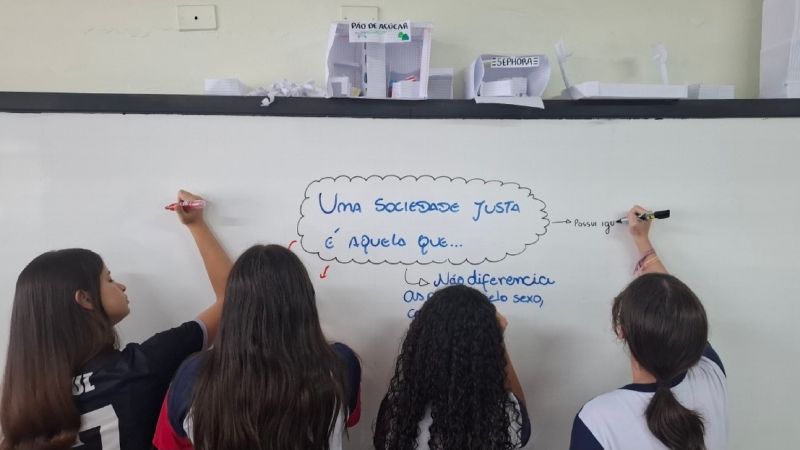 PÃO DE AÇÚCAR
SEPHORA
UMA SOCIEDADE JUSTA
É AQUELA QUE...
Possui igu
Não diferencia
elo sexo,